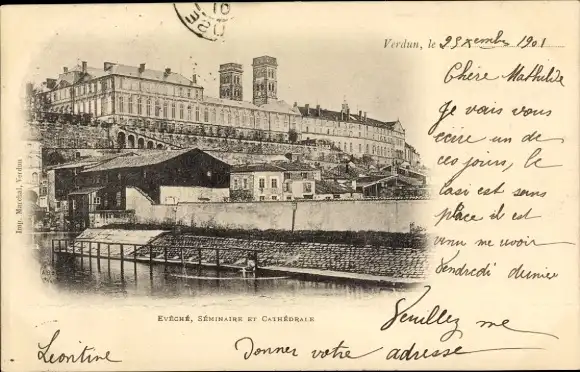 Verdun, le 25 Xembre 1901
Chère Mathilde
Je vais vous
écire un de
ces jours, le
Casi est sans
place il est
venu me voir
Vendredi dernier
Veuillez me
Donner votre adresse
Léontine
EVÊCHÉ, SÉMINAIRE ET CATHÉDRALE
Imp. Marchal, Verdun